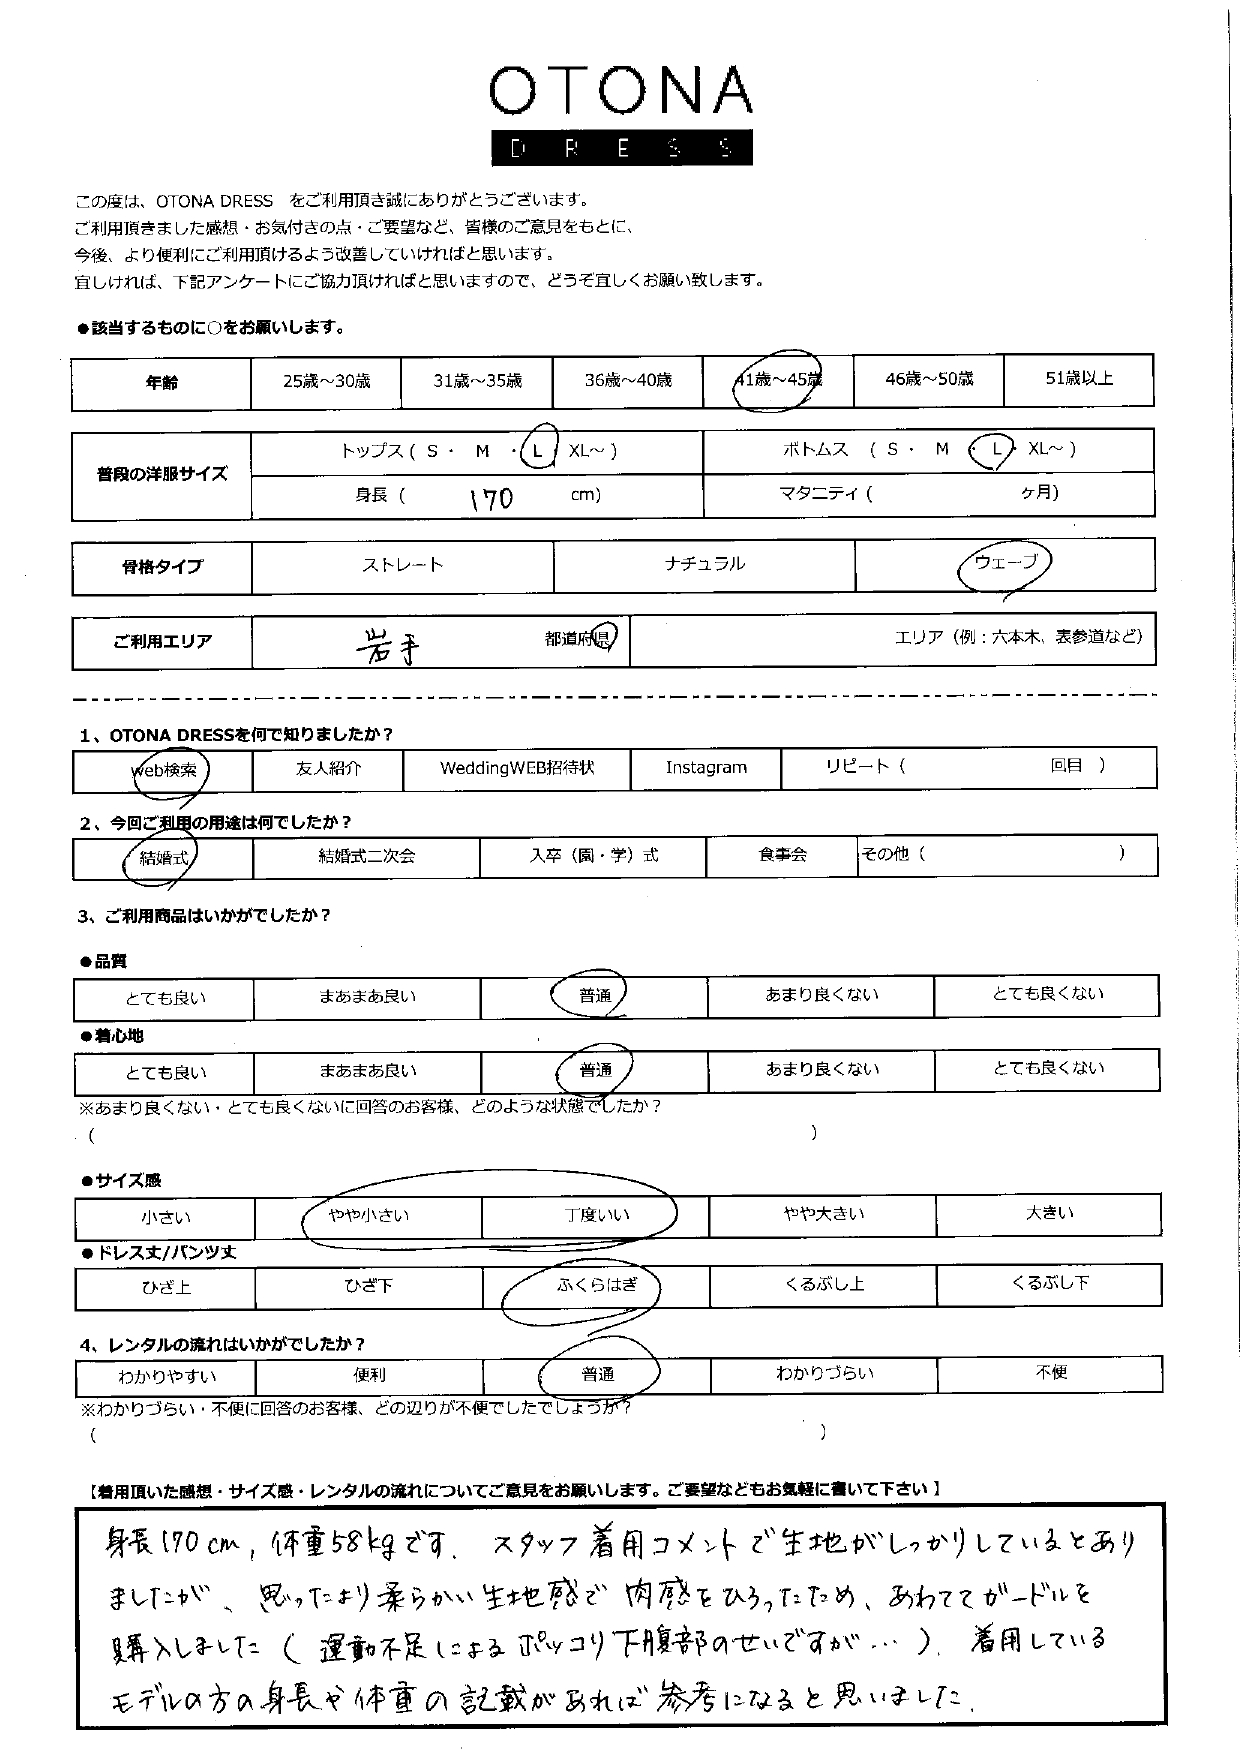 OTONA
DRESS
この度は、OTONA DRESS をご利用頂き誠にありがとうございます。
ご利用頂きました感想・お気付きの点・ご要望など、皆様のご意見をもとに、
今後、より便利にご利用頂けるよう改善していければと思います。
宜しければ、下記アンケートにご協力頂ければと思いますので、どうぞ宜しくお願い致します。
●該当するものに○をお願いします。
年齢 25歳～30歳 31歳～35歳 36歳～40歳 41歳～45歳 46歳～50歳 51歳以上
普段の洋服サイズ トップス ( S ・ M ・ L XL～ ) ボトムス ( S ・ M ・ L ・ XL～ )
身長 ( 170 cm) マタニティ ( ヶ月)
骨格タイプ ストレート ナチュラル ウェーブ
ご利用エリア 岩手 都道府県 エリア（例：六本木、表参道など）
1、OTONA DRESSを何で知りましたか？
web検索 友人紹介 WeddingWEB招待状 Instagram リピート ( 回目 )
2、今回ご利用の用途は何でしたか？
結婚式 結婚式二次会 入卒（園・学）式 食事会 その他 ( )
3、ご利用商品はいかがでしたか？
●品質
とても良い まあまあ良い 普通 あまり良くない とても良くない
●着心地
とても良い まあまあ良い 普通 あまり良くない とても良くない
※あまり良くない・とても良くないに回答のお客様、どのような状態でしたか？
( )
●サイズ感
小さい やや小さい 丁度いい やや大きい 大きい
●ドレス丈/パンツ丈
ひざ上 ひざ下 ふくらはぎ くるぶし上 くるぶし下
4、レンタルの流れはいかがでしたか？
わかりやすい 便利 普通 わかりづらい 不便
※わかりづらい・不便に回答のお客様、どの辺りが不便でしたでしょうか？
( )
【着用頂いた感想・サイズ感・レンタルの流れについてご意見をお願いします。ご要望などもお気軽に書いて下さい】
身長170cm, 体重58kgです. スタッフ着用コメントで生地がしっかりしているとあり
ましたが、思ったより柔らかい生地感で肉感をひろったため、あわててガードルを
購入しました（運動不足によるポッコリ下腹部のせいですが…）. 着用している
モデルの方の身長や体重の記載があれば参考になると思いました.